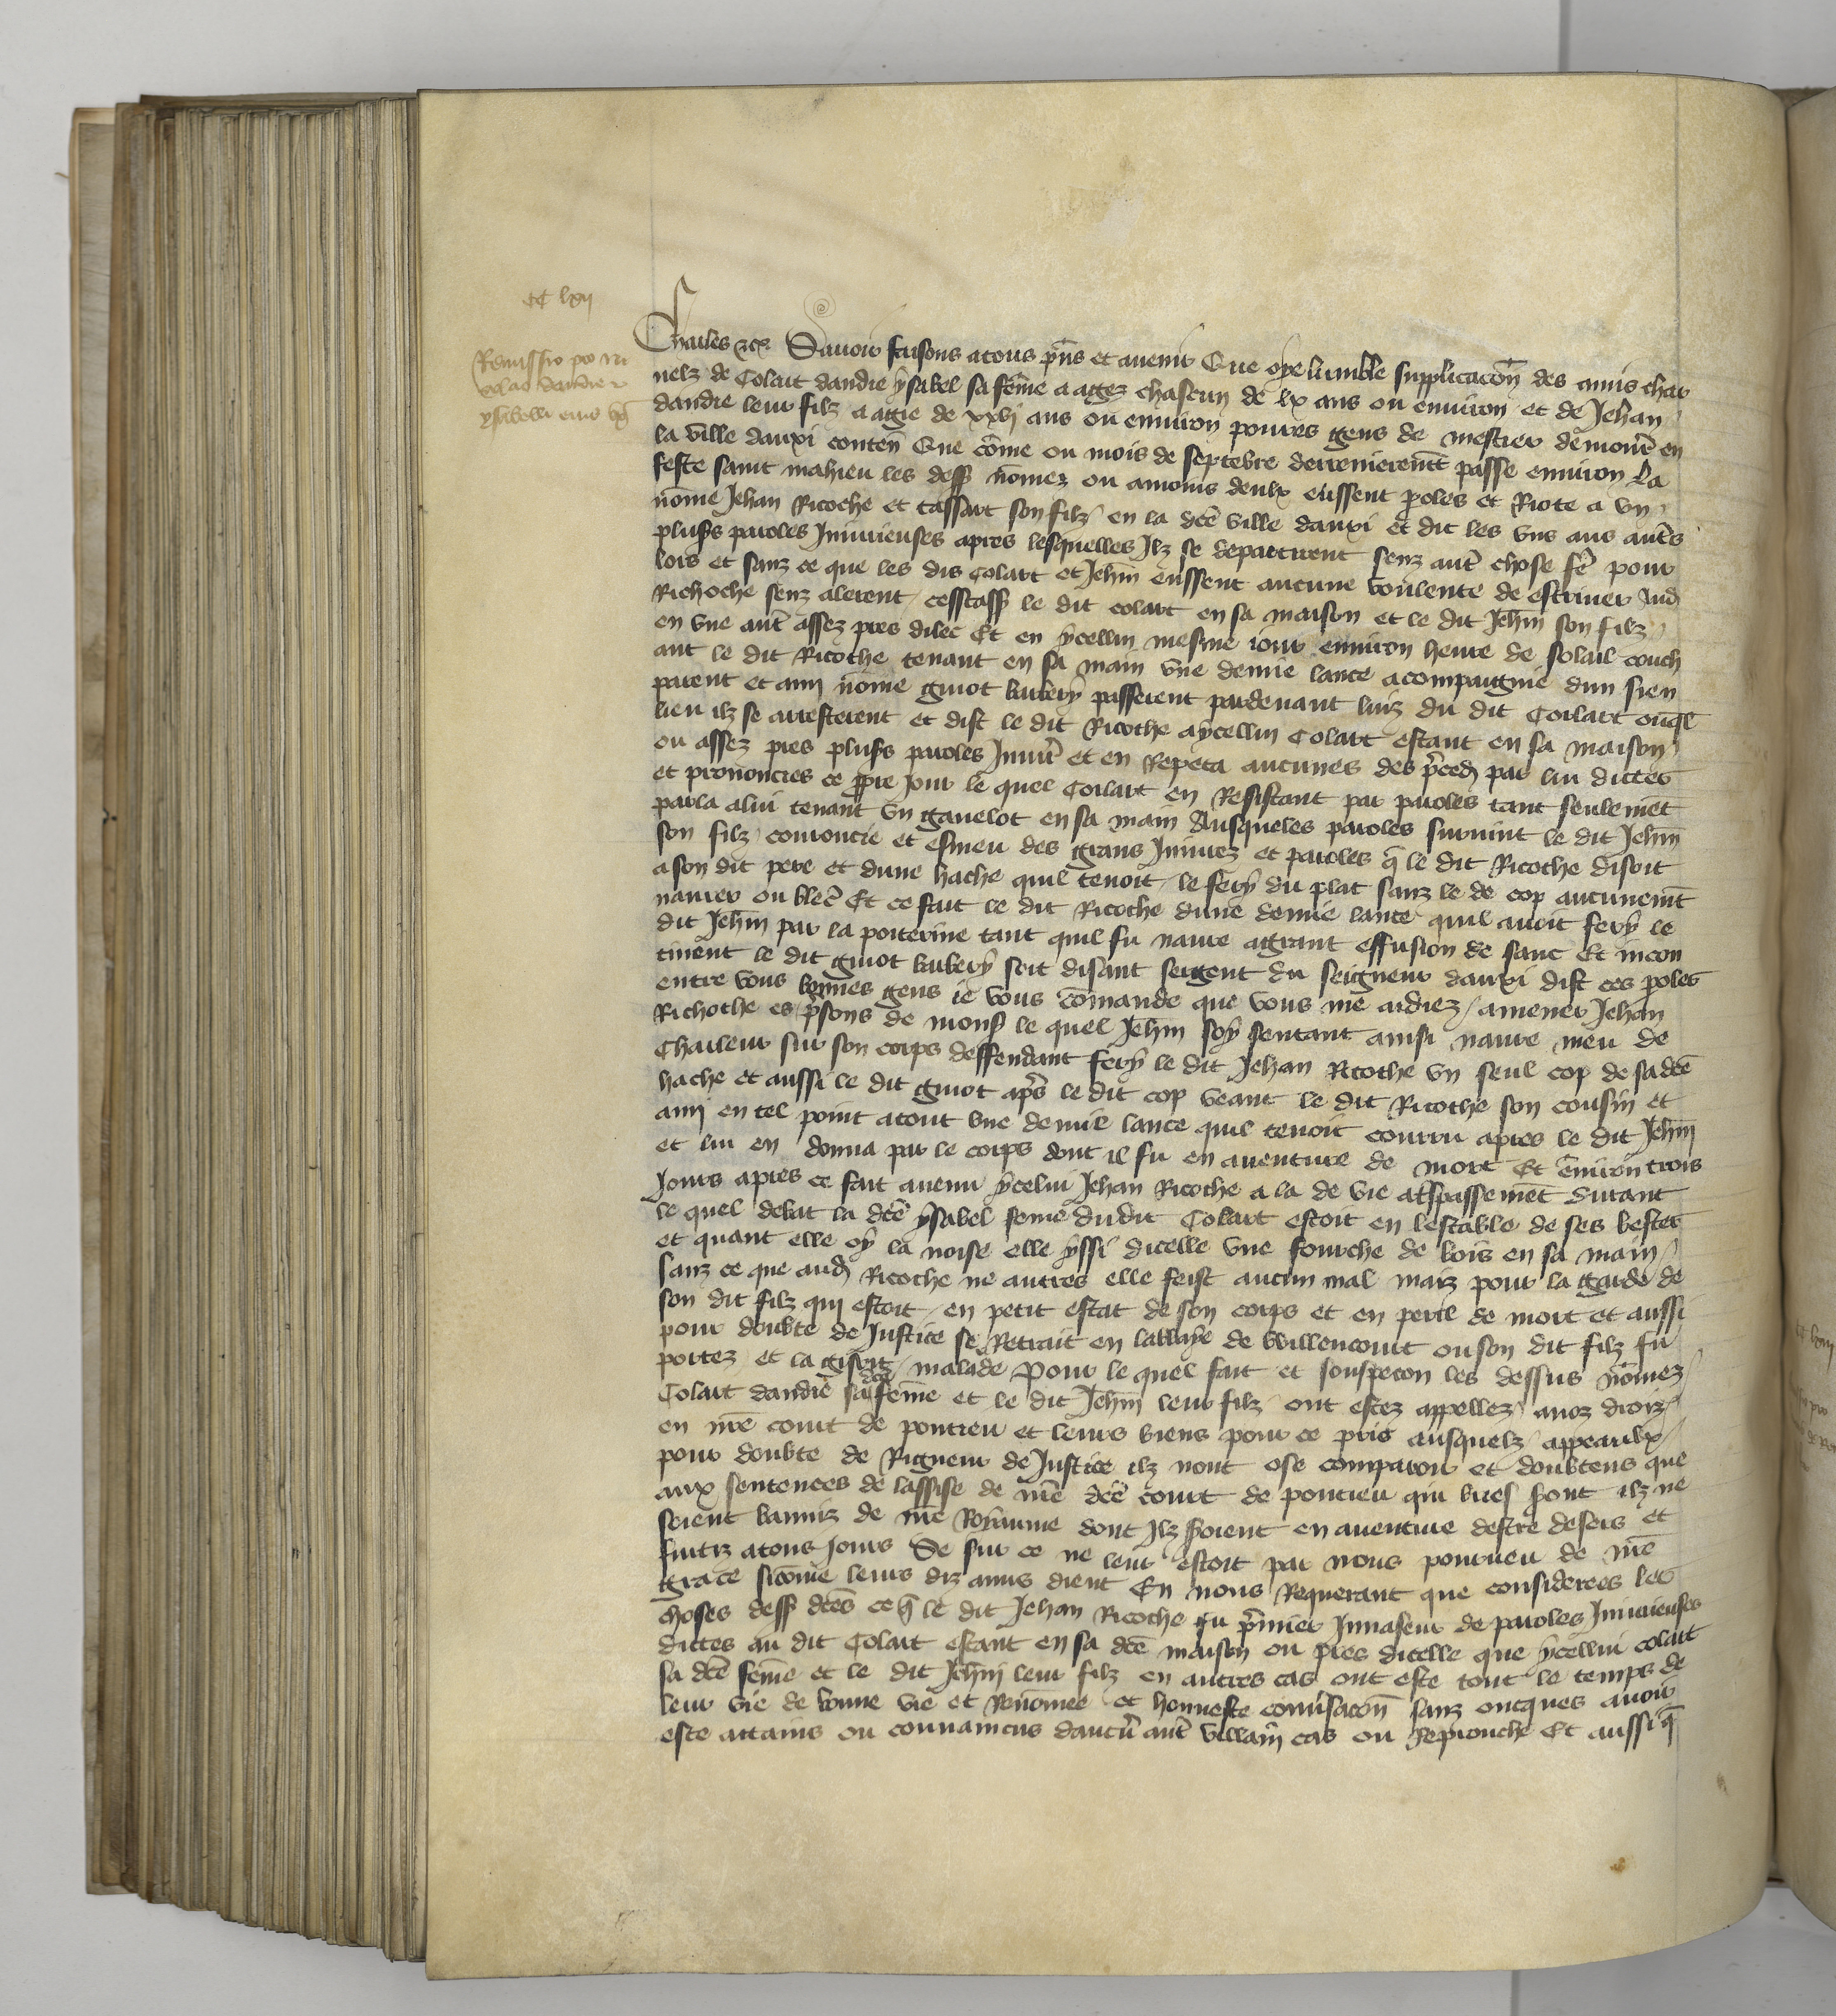 CC lxij
Remissio pro Ni
colao dandie z
ysabelli eius
Charles zc. Sauoir faisons atous pñs et auenir Que oye lumble supplicacōn des amis char
nelz de Colart dandie ysabel sa fēme a agez chascun de lx ans ou enuiron et de Jehan
dandie leur filz a agie de xxvj ans ou enuiron poures gens de mestier demourē en
la ville dauxi contenē Que cōme ou mois de septēbre derrenieremēt passe enuiron la
feste saint mahieu les dess nōmez ou amoins deulx eussent poles et Riote a vn
nōme Jehan Ricoche et tassart son filz en la dcē ville dauxi et dit les vns aus autēs
plusrs paroles Iniurieuses apres lesquelles Ilz se departirent senz autē chose fē pour
lors et sanz ce que les dis Colart et Jehñ eussent aucune voulente de estriuer aud
Richoche senz alerent cesstass le dit colart en sa maison et le dit Jehñ son filz
en vne autē assez pres dilec Et en ycellui mesme iour enuiron heure de solail couch
ant le dit Ricoche tenant en sa main vne demie lance acompaigne dun sien
parent et ami nōme guiot bubery passerent pardeuant luiz du dit Colart ouqle
lieu ilz se arresterent et dist le dit Ricoche aycellui Colart estant en sa maison
ou assez pres plusrs paroles Iniur et en Repeta aucunes des pced par lui dictes
et prononcies ce ppre Jour le quel Colart en Resistant par paroles tant seulemēt
parla alui tenant vn gauelot en sa main Ausqueles paroles suruint le dit Jehñ
son filz couroucie et esmeu des grans Iniures et paroles q le dit Ricoche disoit
a son dit pere et dune hache quil tenoit le fery du plat sanz le de cop aucunemt
naurer ou blecē Et ce fait le dit Ricoche dune demie lance quil auoit fery le
dit Jehñ par la poiterine tant quil fu naure agrant effusion de sanc Et incon
tinēt le dit guiot bubery soit disant sergent du seigneur dauxi dist ces poles
entre vous bonnes gens ie vous cōmande que vous me aidiez amener Jehan
Richoche es psons de mons le quel Jehñ soy sentant ainsi naure meu de
Chaleur sur son corps deffendant fery le dit Jehan Ricoche vn seul cop de sa dcē
hache et aussi le dit guiot aps le dit cop veant le dit Ricoche son cousin et
ami en tel point atout vne demie lance quil tenoit couru apres le dit Jehñ
et lui en donna par le corps dont il fu en auenture de mort Et enuiron trois
Jours apres ce fait auenu ycelui Jehan Ricoche a la de vie atspassemēt durant
le quel debat la dcē ysabel feme dudit Colart estoit en lestable de ses bestes
et quant elle oy la noise elle yssi dicelle vne fourche de bois en sa main
sanz ce que aud Ricoche ne autres elle feist aucun mal maiz pour la garde de
son dit filz qui estoit en petit estat de son corps et en peril de mort et aussi
pour doubte de Justice se Retrait en labbaye de Willencourt ou son dit filz fu
portez et la gisoit malade Pour le quel fait et souspecon les dessus nōmez
Colart dandie sa dcē fēme et le dit Jehñ leur filz ont estez appellez auz droiz
en nrē court de pontieu et leurs biens pour ce pris ausquelz appeaulx
pour doubte de Rigueur de Justice ilz nont ose comparoir et doubtens que
aux sentences de lassise de nrē dcē court de pontieu qui brief sont ilz ne
soient banniz de nrē Royaume dont Ilz soient en auenture destre desers et
fuitiz atous Jours Se sur ce ne leur estoit par nous pourueu de nrē
grace sicōme leurs diz amis dient En nous Requerant que considerees les
choses dess dcēs ce q le dit Jehan Ricoche fu pmier Inuaseur de paroles Iniurieuses
dictes au dit Colart estant en sa dcē maison ou pres dicelle que ycellui colart
sa dcē feme et le dit Jehñ leur filz en autres cas ont este tout le temps de
leur vie de bonne vie et Renōmee et honneste conusacōn sanz oncques auoir
este attains ou conuaincus daucū autē villain cas ou Reprouche Et aussi q